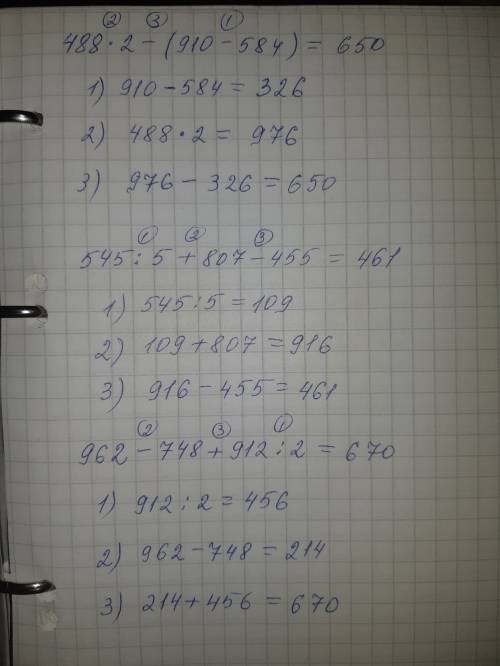 ② ③ ①
488 · 2 - (910 - 584) = 650
1) 910 - 584 = 326
2) 488 · 2 = 976
3) 976 - 326 = 650
① ② ③
545 : 5 + 807 - 455 = 461
1) 545 : 5 = 109
2) 109 + 807 = 916
3) 916 - 455 = 461
② ③ ①
962 - 748 + 912 : 2 = 670
1) 912 : 2 = 456
2) 962 - 748 = 214
3) 214 + 456 = 670